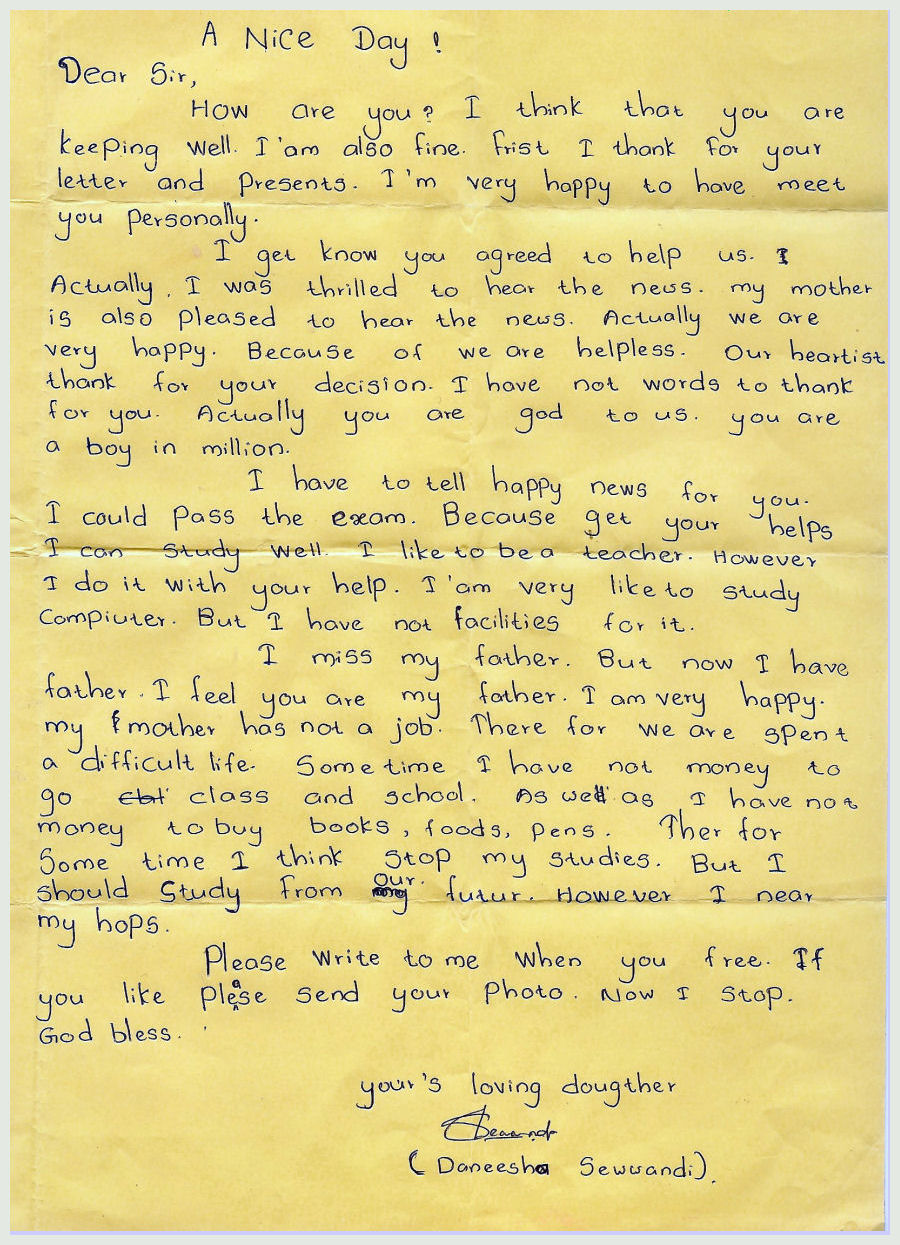 A Nice Day !
Dear Sir,
How are you? I think that you are
keeping well. I'am also fine. Frist I thank for your
letter and presents. I'm very happy to have meet
you personally.
I get know you agreed to help us. I
Actually, I was thrilled to hear the news. my mother
is also pleased to hear the news. Actually we are
very happy. Because of we are helpless. Our heartist
thank for your decision. I have not words to thank
for you. Actually you are god to us. you are
a boy in million.
I have to tell happy news for you.
I could pass the exam. Because get your helps
I can study well. I like to be a teacher. However
I do it with your help. I'am very like to study
Compiuter. But I have not facilities for it.
I miss my father. But now I have
father. I feel you are my father. I am very happy.
my mother has not a job. There for we are spent
a difficult life. Some time I have not money to
go class and school. As well as I have not
money to buy books, foods, pens. Ther for
Some time I think stop my studies. But I
should study from our futur. However I near
my hops.
Please write to me when you free. If
you like please send your photo. Now I stop.
God bless.
your's loving dougther
(Daneesha Sewwandi).